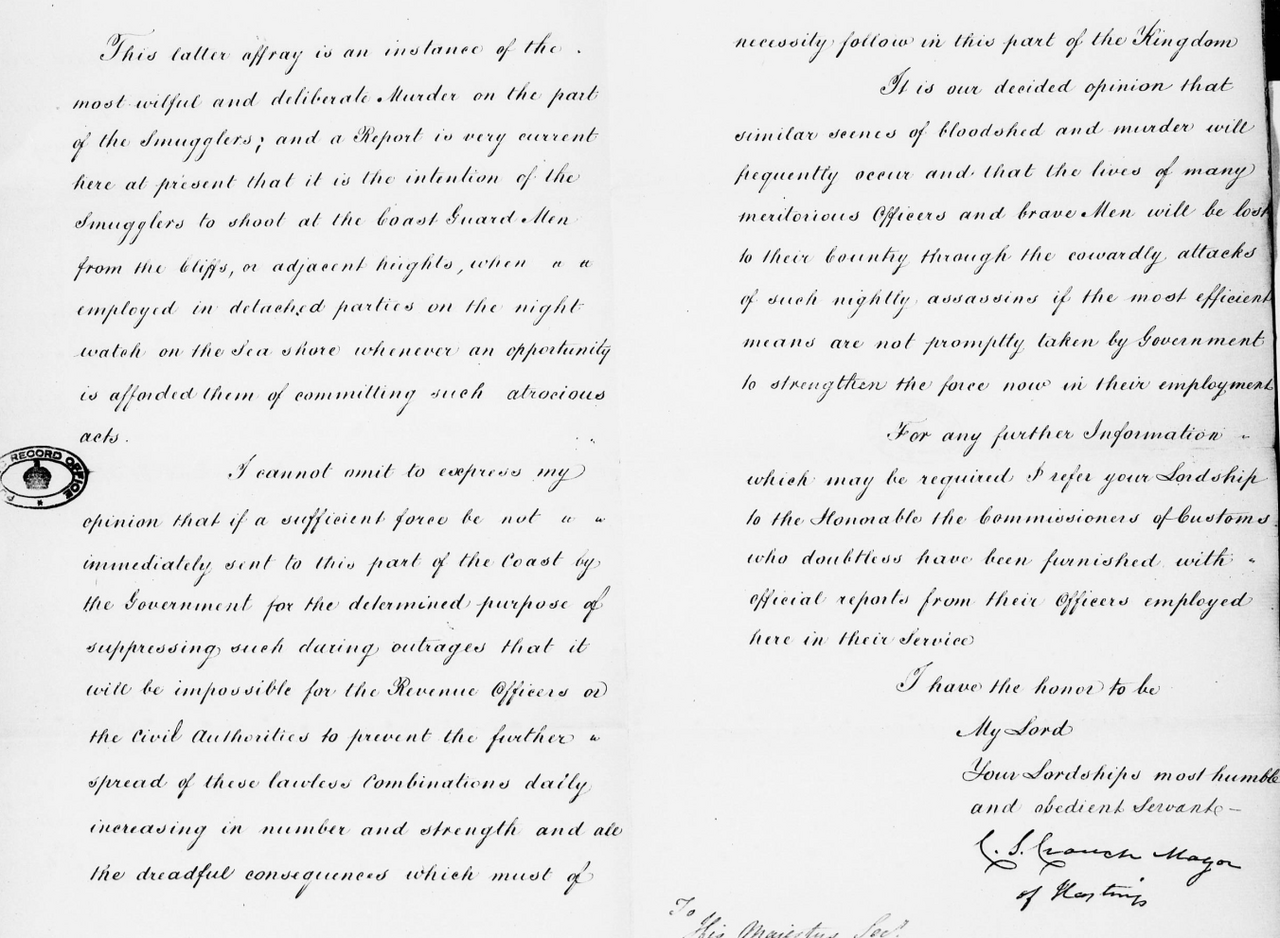 This latter affray is an instance of the
most wilful and deliberate Murder on the part
of the Smugglers; and a Report is very current
here at present that it is the intention of the
Smugglers to shoot at the Coast Guard Men
from the Cliffs, or adjacent heights, when " "
employed in detached parties on the night
watch on the Sea shore whenever an opportunity
is afforded them of committing such atrocious
acts.
I cannot omit to express my
opinion that if a sufficient force be not " "
immediately sent to this part of the Coast by
the Government for the determined purpose of
suppressing such daring outrages that it
will be impossible for the Revenue Officers or
the Civil Authorities to prevent the further "
spread of these lawless Combinations daily
increasing in number and strength and all
the dreadful consequences which must of
RECORD OFFICE
necessity follow in this part of the Kingdom
It is our decided opinion that
similar scenes of bloodshed and murder will
frequently occur and that the lives of many
meritorious Officers and brave Men will be lost
to their Country through the cowardly attacks
of such nightly assassins if the most efficient
means are not promptly taken by Government
to strengthen the force now in their employment
For any further Information "
which may be required I refer your Lordship
to the Honorable the Commissioners of Customs
who doubtless have been furnished with "
official reports from their Officers employed
here in their Service
I have the honor to be
My Lord
Your Lordships most humble
and obedient Servant —
C. S. Crouch Mayor
of Hastings
To
His Majestys Secy.